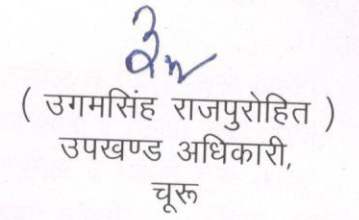 ( उगमसिंह राजपुरोहित )
उपखण्ड अधिकारी,
चूरू